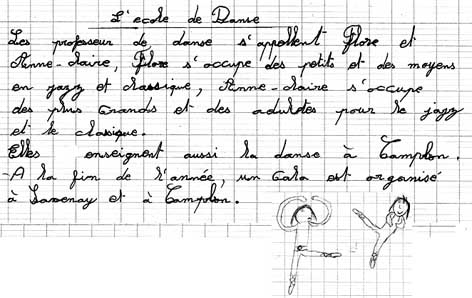 L'ecole de Danse
Les professeur de danse s'appellent Flore et
Anne-claire, Flore s'occupe des petits et des moyens
en jazz et classique, Anne-claire s'occupe
des plus Grands et des adultes pour le jazz
et le classique.
Elles enseignent aussi la danse à Camplon.
-A la fin de l'année, un Gala est organisé
à Savenay et à Camplon.